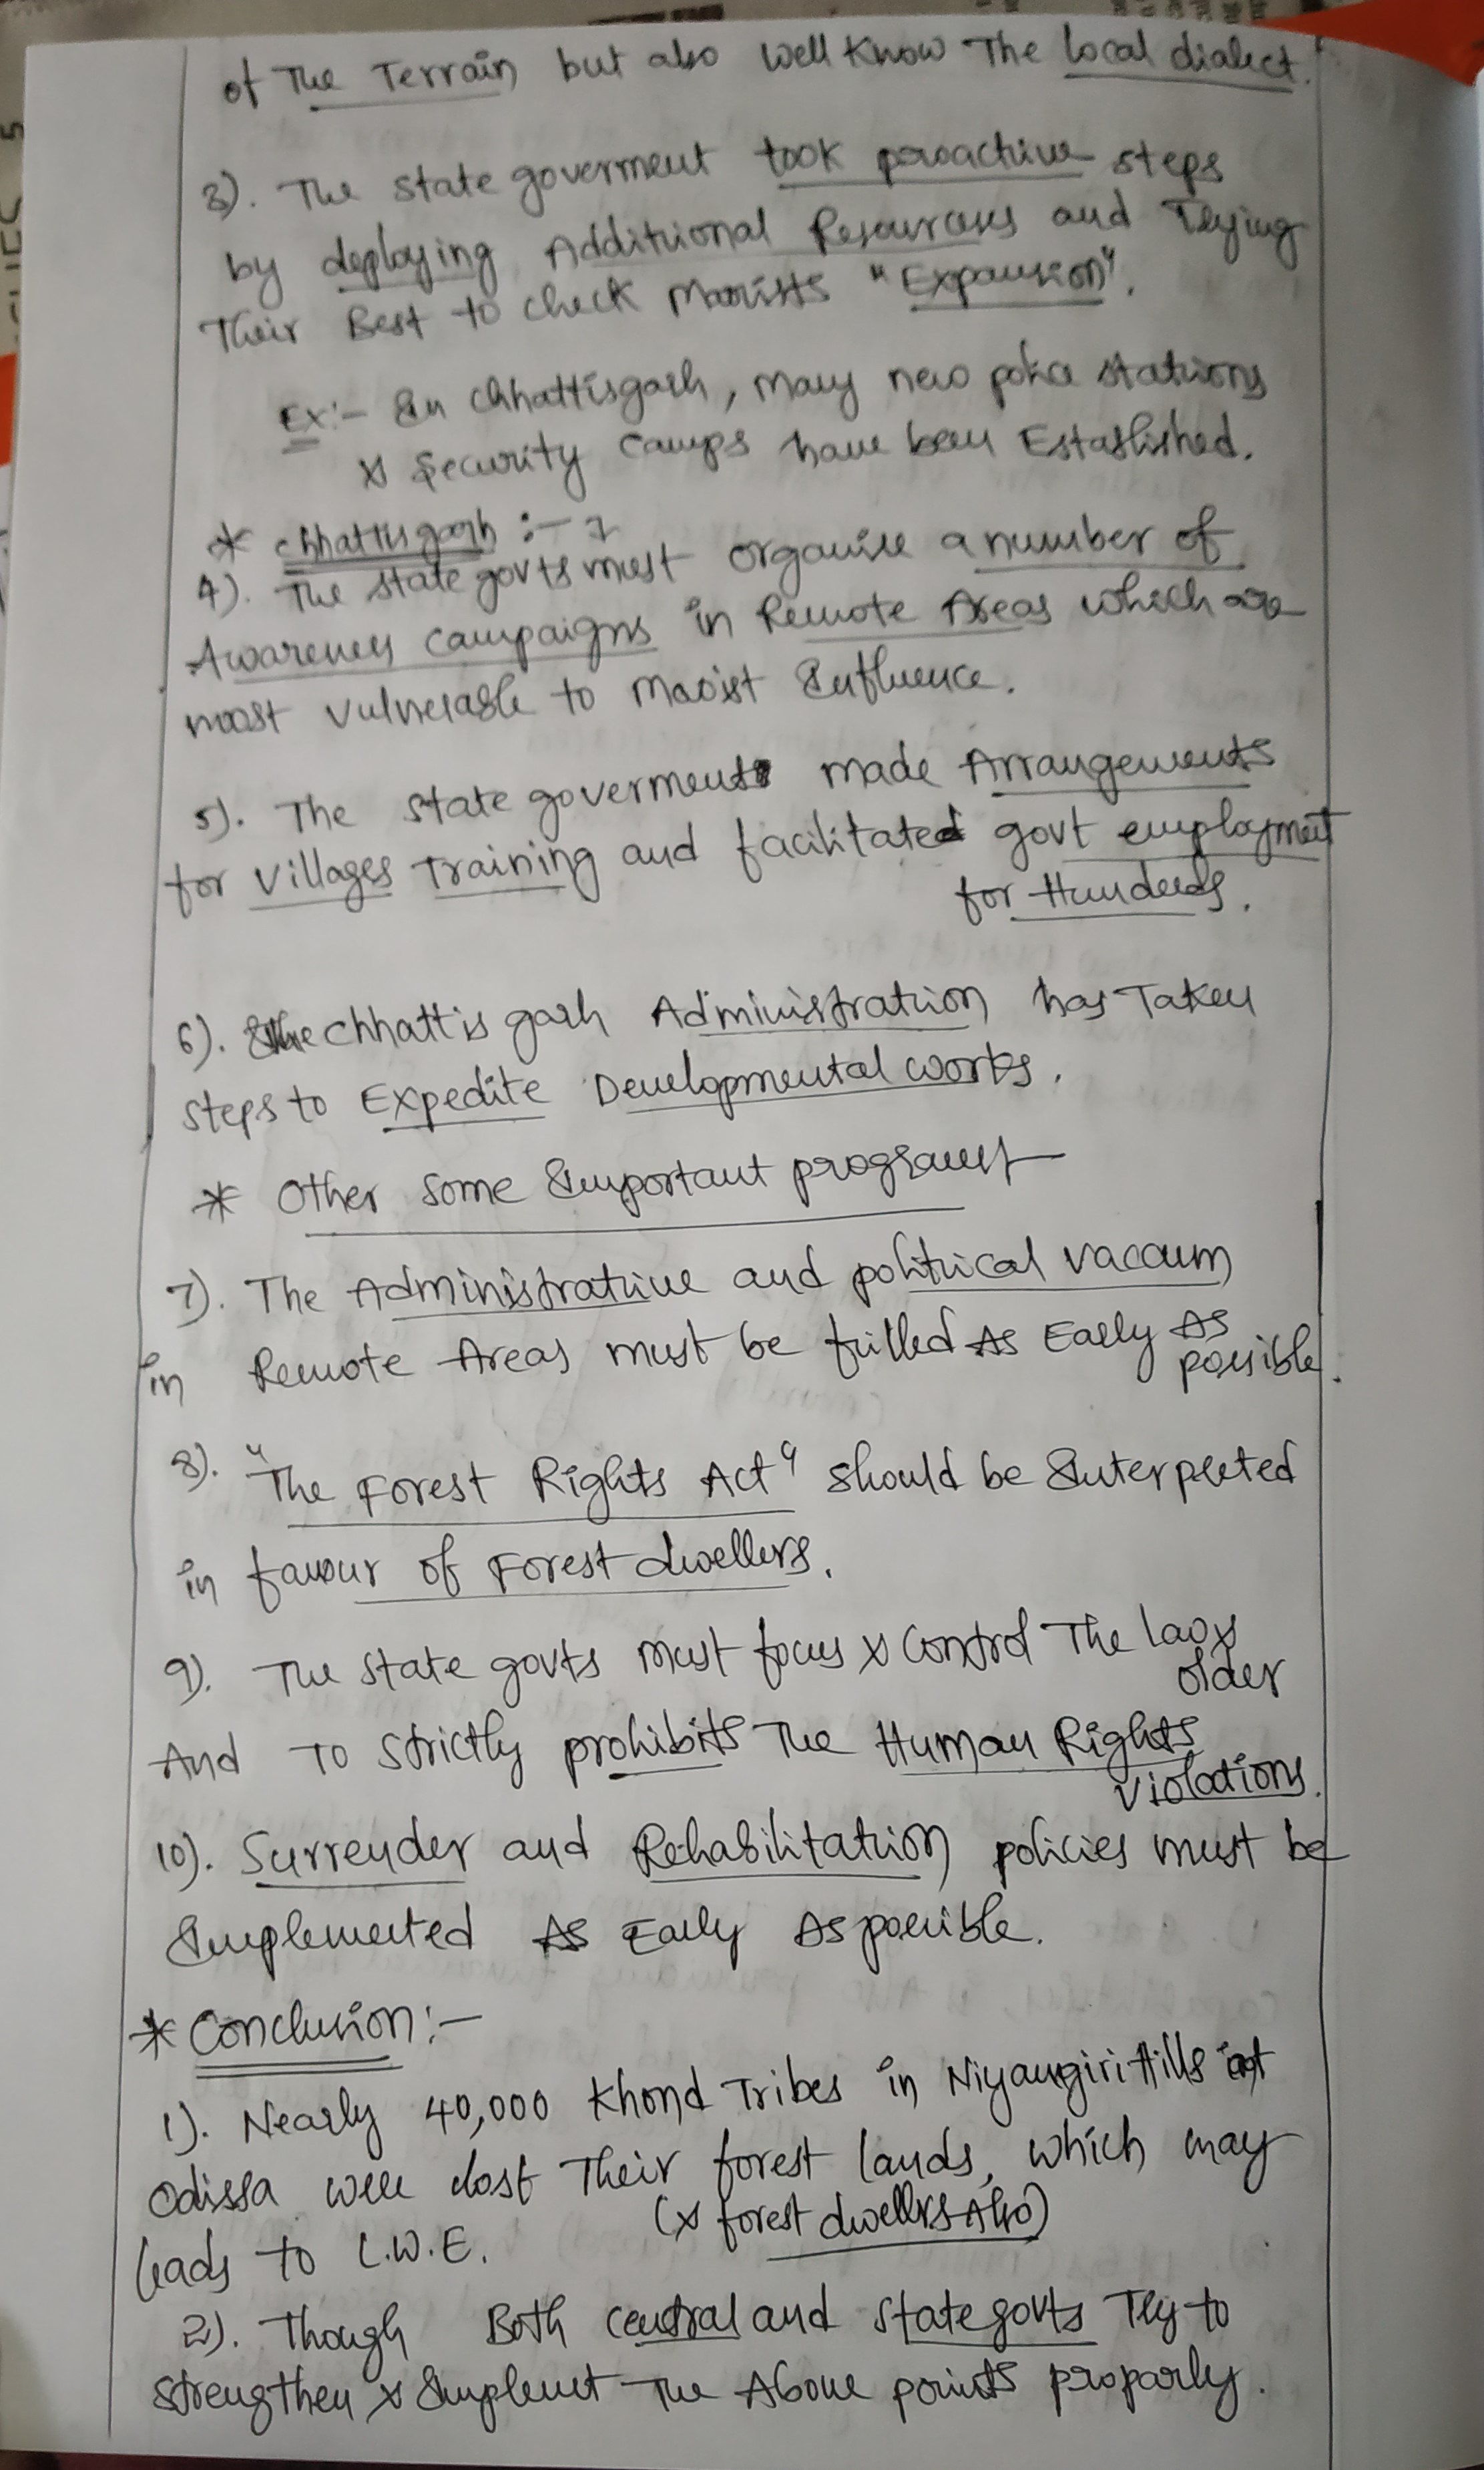 of The Terrain but also well know The local dialect.
3). The state goverment took proactive steps
by deploying Additional Resources and Trying
Their Best to check Maoists "Expansion".
Ex:- In Chhattisgarh, Many new police stations
& Security camps have been Established.
* Chhattisgarh :-
4). The state govts must organise a number of
Awareness campaigns in Remote Areas which are
most vulnerable to Maoist Influence.
5). The state goverments made Arrangements
for Villages Training and facilitated govt employment
for Hundreds.
6). The Chhattisgarh Administration has Taken
steps to Expedite Developmental works.
* Other some Important programs
7). The Administrative and political vaccum
in Remote Areas must be filled As Early As
possible.
8). "The Forest Rights Act" should be Interpreted
in favour of Forest dwellers.
9). The state govts must focus & Control The law &
order
And To strictly prohibits The Human Rights
Violations.
10). Surrender and Rehabilitation policies must be
Implemented As Early As possible.
* Conclusion:-
1). Nearly 40,000 Khond Tribes in Niyamgiri Hills at
Odissa were lost Their forest lands, which may
(& forest dwellers Also)
leads to L.W.E.
2). Though Both central and state govts Try to
strengthen & Implemet The Above points properly.